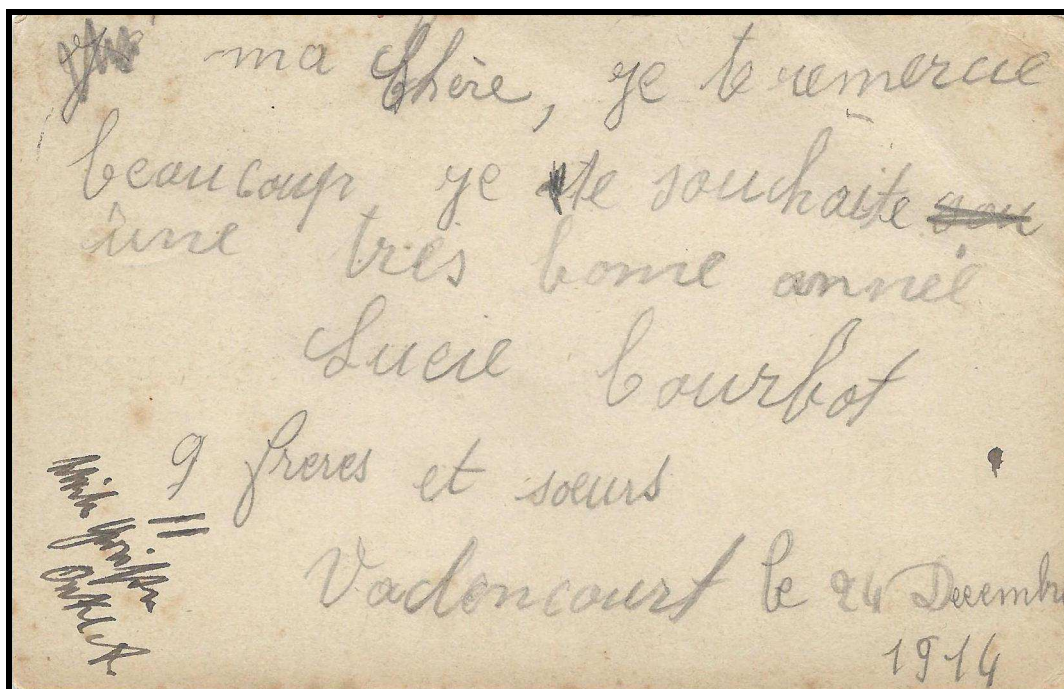 ma Chère, je te remercie
beaucoup, je te souhaite
une très bonne année
Lucie Courbot
9 freres et sœurs
11
Vadencourt le 24 Decembre
1914